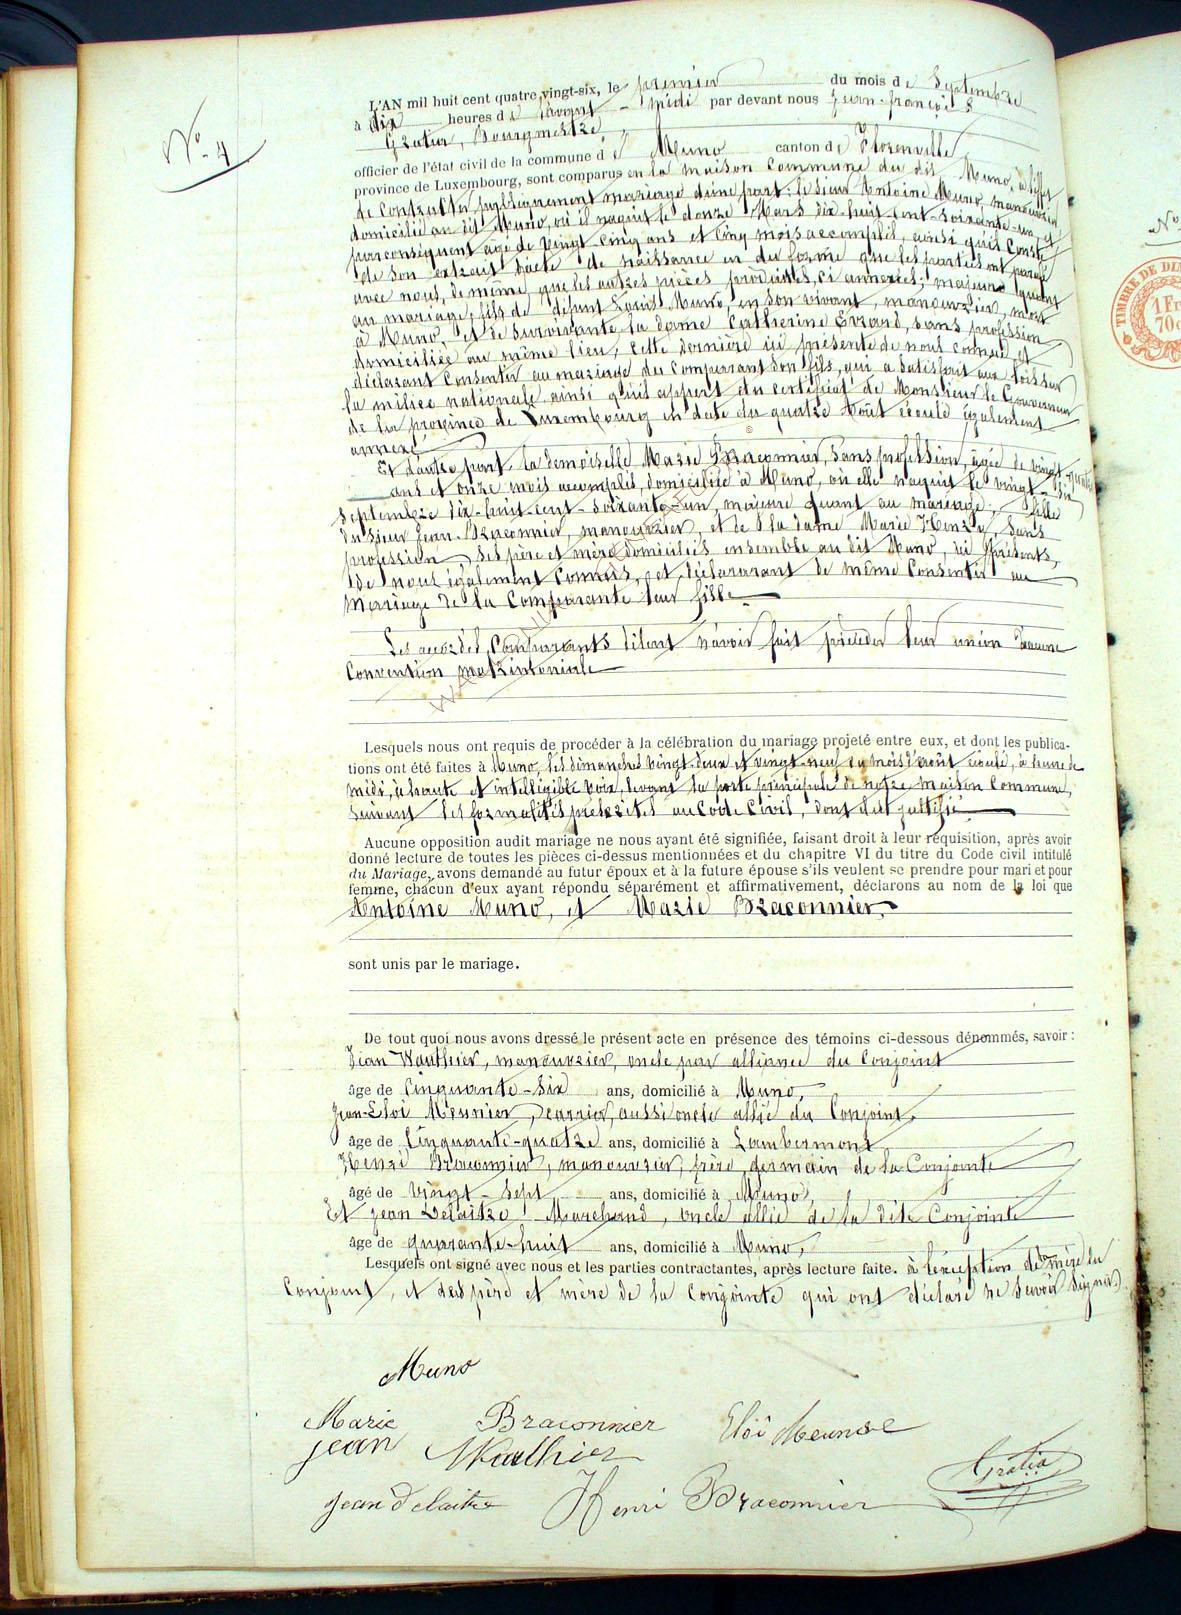 N° 4
L'AN mil huit cent quatre vingt-six, le premier du mois de Septembre
à dix heures de avant - midi par devant nous Jean-françois
Gratia, Bourgmestre,
officier de l'état civil de la commune de Muno canton de Florenville
province de Luxembourg, sont comparus en la maison Commune du dit Muno, à l'effet
de Contracter publiquement mariage d'une part: le sieur Antoine Muno, manouvrier
domicilié au dit Muno, où il naquit le douze Mars dix-huit cent-soixante-un, et
par conséquent âgé de vingt cinq ans et cinq mois accomplis, ainsi qu'il Conste
de son extrait d'acte de naissance en due forme que les parties ont paraphé
avec nous, de même que les autres pièces produites, ci annexées; majeur quant
au mariage, fils de défunt Louis Muno, en son vivant, manouvrier, mort
à Muno, et de survivante, la dame Catherine Evrard, sans profession
domiciliée au même lieu, cette dernière ici présente de nous connue et
déclarant Consentir au mariage du Comparant son fils, qui a satisfait aux loix sur
la milice nationale, ainsi qu'il appert du certificat de Monsieur le Gouverneur
de la province de Luxembourg en date du quatre Août écoulé également
annexé
Et d'autre part, la demoiselle Marie Braconnier, Sans profession, âgée de vingt-quatre
ans et onze mois accomplis, domiciliée à Muno, où elle naquit le vingt-six
Septembre dix-huit-cent-soixante-un, majeure quant au mariage, fille
du sieur Jean Braconnier, manouvrier, et de la dame Marie Henry, Sans
profession, ses père et mère domiciliés ensemble au dit Muno, ici présents,
de nous également Connus, et déclarant de même Consentir au
Mariage de la Comparante leur fille
Les accordés Comparants disent n'avoir fait précéder leur union d'aucune
Convention matrimoniale
Lesquels nous ont requis de procéder à la célébration du mariage projeté entre eux, et dont les publica-
tions ont été faites à Muno, les dimanches vingt-deux et vingt-neuf du mois d'août écoulé, à heure de
midi, à haute et intelligible voix, devant la porte principale de notre maison Commune,
suivant les formalités préscrites au Code Civil, dont dû justifié
Aucune opposition audit mariage ne nous ayant été signifiée, faisant droit à leur réquisition, après avoir
donné lecture de toutes les pièces ci-dessus mentionnées et du chapitre VI du titre du Code civil intitulé
du Mariage, avons demandé au futur époux et à la future épouse s'ils veulent se prendre pour mari et pour
femme, chacun d'eux ayant répondu séparément et affirmativement, déclarons au nom de la loi que
Antoine Muno, et Marie Braconnier,
sont unis par le mariage.
De tout quoi nous avons dressé le présent acte en présence des témoins ci-dessous dénommés, savoir :
Jean Wauthier, manouvrier, oncle par alliance du Conjoint
âge de Cinquante-Six ans, domicilié à Muno,
Jean-Eloi Meunier, carrier, aussi oncle allié du Conjoint,
âge de Cinquante-quatre ans, domicilié à Lambermont
Henri Braconnier, manouvrier, frère germain de la Conjointe
âgé de vingt-sept ans, domicilié à Muno,
Et Jean Delaitre, Marchand, oncle allié de la dite Conjointe
âge de quarante-huit ans, domicilié à Muno,
Lesquels ont signé avec nous et les parties contractantes, après lecture faite. à l'exception de mère du
Conjoint, et des père et mère de la Conjointe qui ont déclaré ne savoir signer.
Muno
Marie Braconnier Eloi Meunier
jean Wauthier
Gratia
Jean Delaitre Henri Braconnier
TIMBRE DE DI
1 Fr
70 c